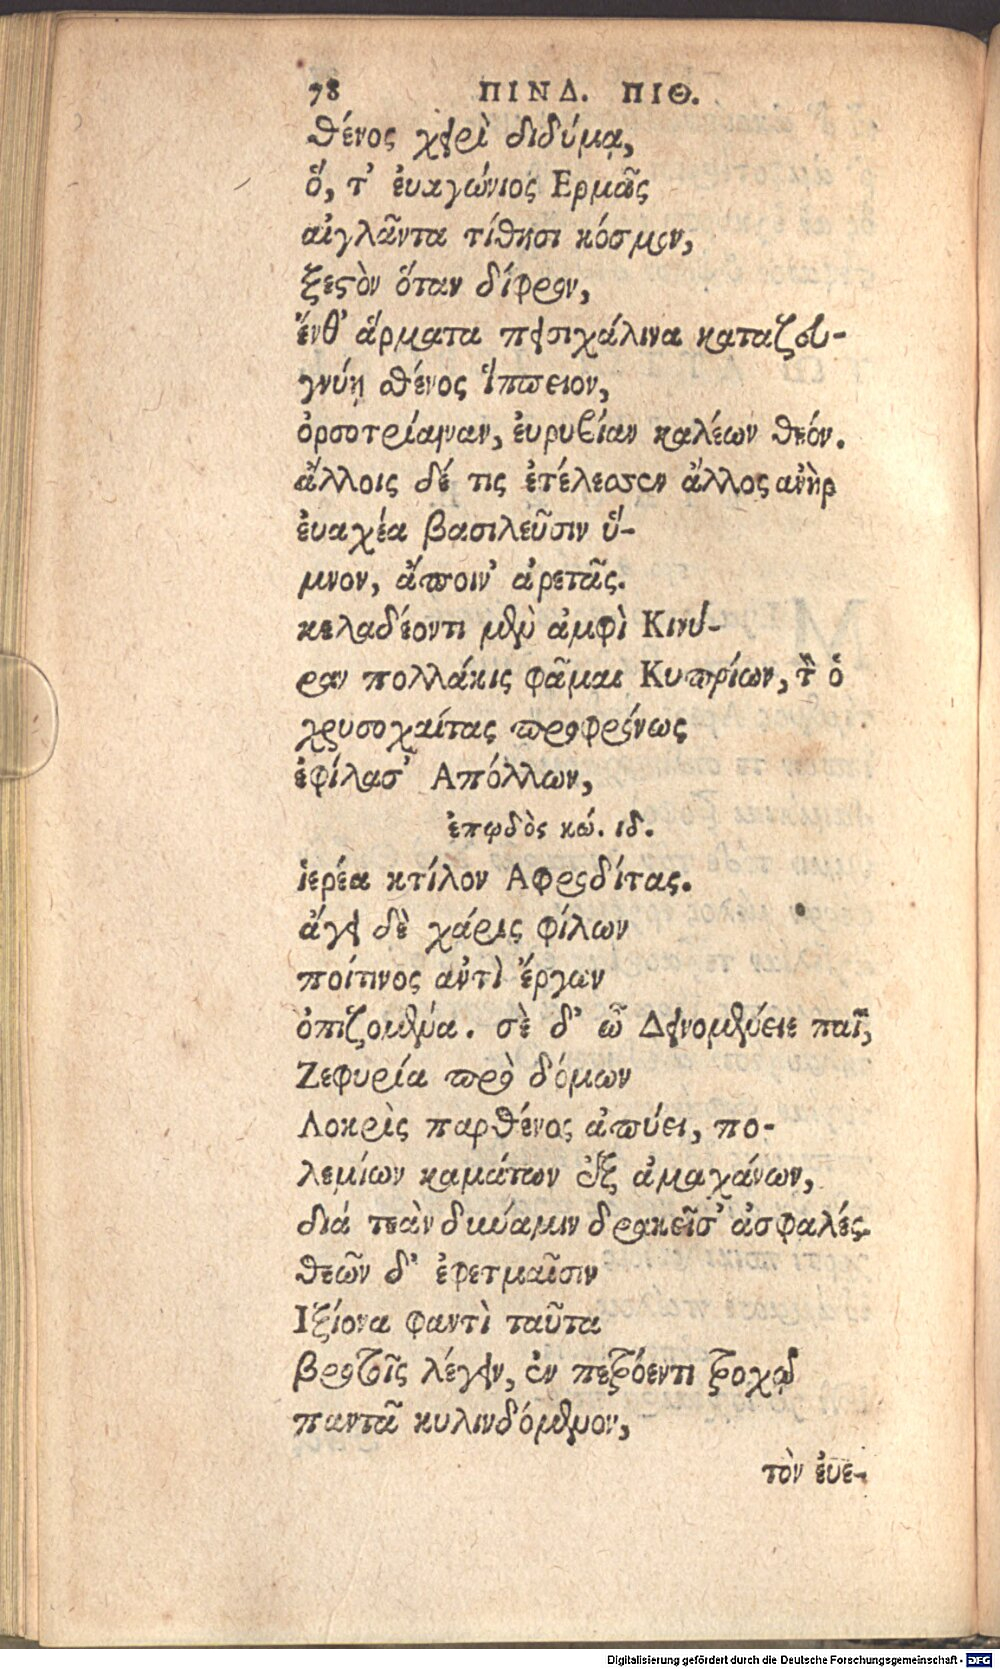 78 ΠΙΝΔ. ΠΙΘ.
θένος χειρὶ διδύμᾳ,
ὅ, τ' ἐναγώνιος Ερμᾶς
αἰγλᾶντα τίθησι κόσμον,
ξεστὸν ὅταν δίφρον,
ἔνθ' ἅρματα πεισιχάλινα καταζευ-
γνύῃ σθένος ἵππειον,
ὀρσοτρίαιναν, ἐυρυβίαν καλέων θεόν.
ἄλλοις δέ τις ἐτέλεσσεν ἄλλος ἀνὴρ
ἐυαχέα βασιλεῦσιν ὕ-
μνον, ἄποιν' ἀρετᾶς.
κελαδέοντι μὲν ἀμφὶ Κινύ-
ραν πολλάκις φᾶμαι Κυπρίων, τὸν ὁ
χρυσοχαίτας προφρόνως
ἐφίλασ' Απόλλων,
ἐπῳδὸς κώ. ιδ.
ἱερέα κτίλον Αφροδίτας.
ἄγει δὲ χάρις φίλων
ποίτινος ἀντὶ ἔργων
ὀπιζομένα. σὲ δ' ὦ Δεινομένειε παῖ,
Ζεφυρία πρὸ δόμων
Λοκρὶς παρθένος ἀπύει, πο-
λεμίων καμάτων ἐξ ἀμαχάνων,
διά τεὰν δύναμιν δρακεῖσ' ἀσφαλές.
θεῶν δ' ἐφετμαῖσιν
Ιξίονα φαντὶ ταῦτα
βροτοῖς λέγειν, ἐν πτερόεντι τροχῷ
παντᾶ κυλινδόμενον,
τὸν ἐυε-
Digitalisierung gefördert durch die Deutsche Forschungsgemeinschaft - DFG